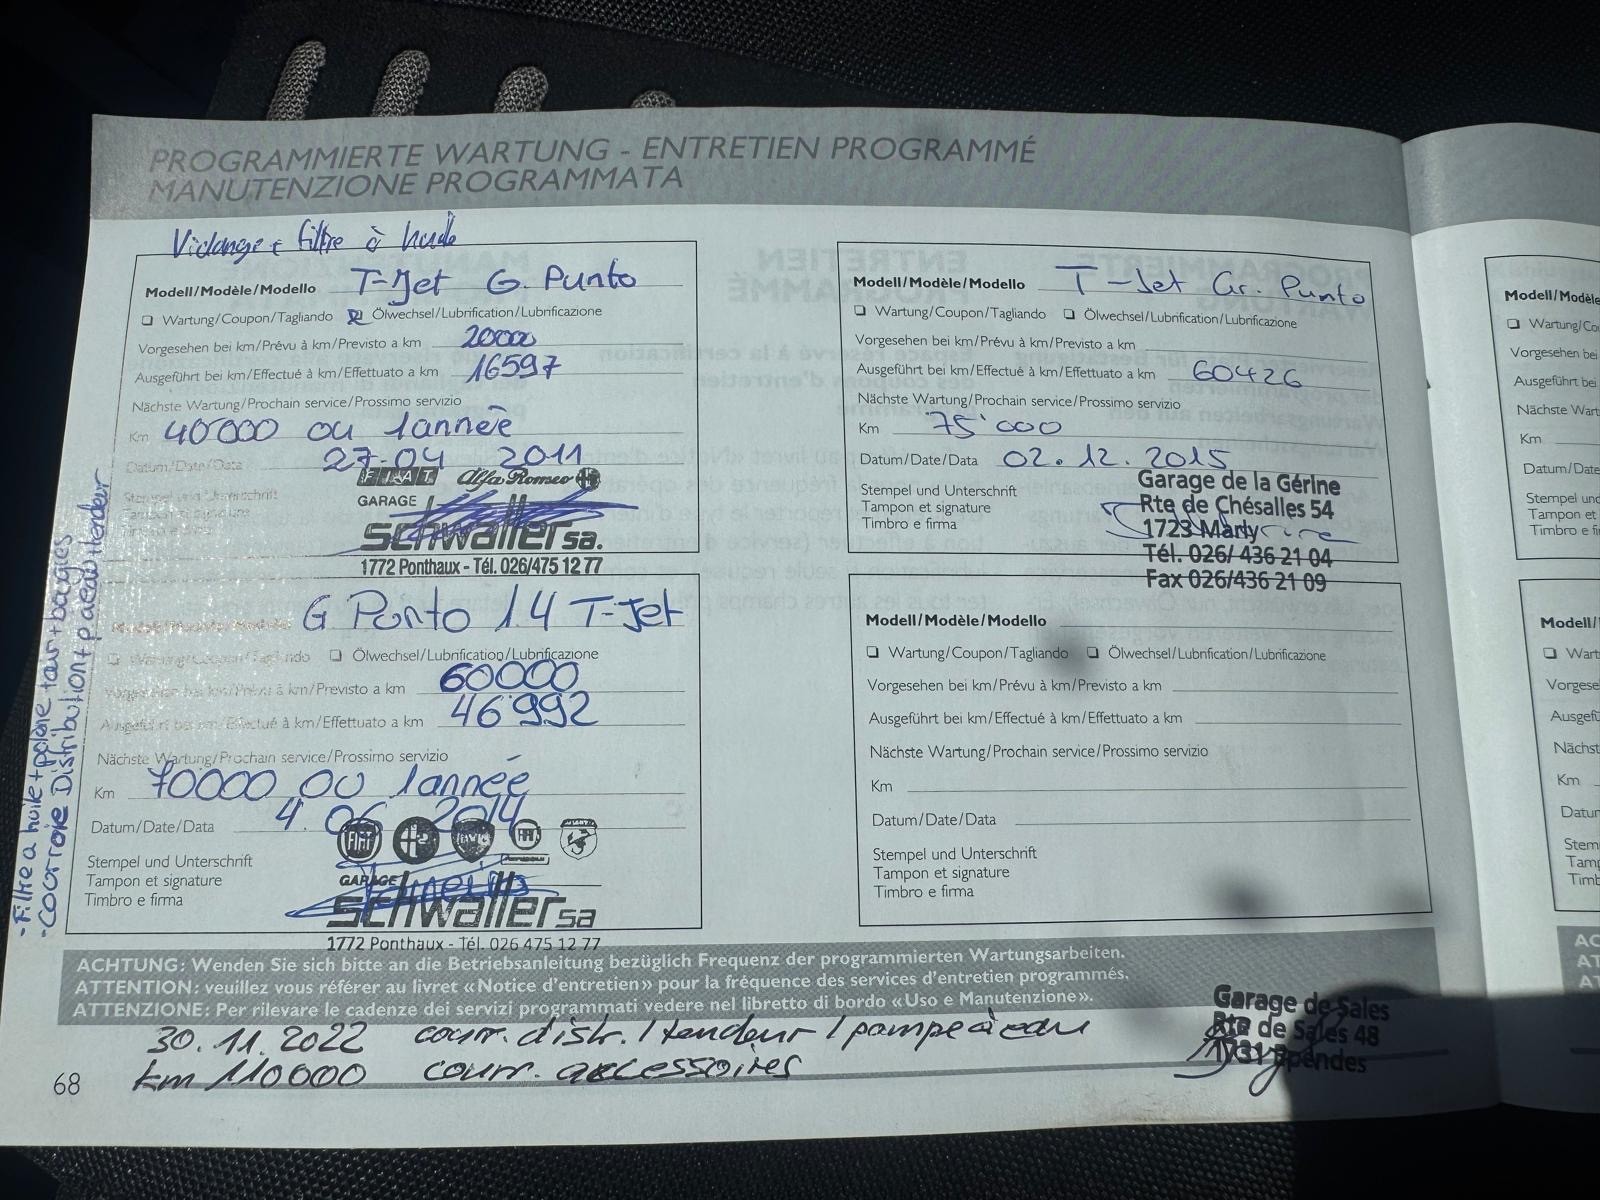 PROGRAMMIERTE WARTUNG - ENTRETIEN PROGRAMMÉ
MANUTENZIONE PROGRAMMATA
Vidange + filtre à huile
Modell/Modèle/Modello T-Jet G. Punto
Wartung/Coupon/Tagliando Ölwechsel/Lubrification/Lubrificazione
Vorgesehen bei km/Prévu à km/Previsto a km 20000
Ausgeführt bei km/Effectué à km/Effettuato a km 16597
Nächste Wartung/Prochain service/Prossimo servizio
Km 40000 ou 1année
Datum/Date/Data 27-04 2011
Stempel und Unterschrift
Tampon et signature
Timbro e firma
FIAT Alfa Romeo
GARAGE
schwaller sa.
1772 Ponthaux - Tél. 026/475 12 77
Modell/Modèle/Modello G Punto 1.4 T-Jet
Wartung/Coupon/Tagliando Ölwechsel/Lubrification/Lubrificazione
Vorgesehen bei km/Prévu à km/Previsto a km 60000
Ausgeführt bei km/Effectué à km/Effettuato a km 46'992
Nächste Wartung/Prochain service/Prossimo servizio
Km 70000 ou 1année
Datum/Date/Data 4. 06 2014
Stempel und Unterschrift
Tampon et signature
Timbro e firma
FIAT
GARAGE
schwaller sa
1772 Ponthaux - Tél. 026 475 12 77
- Filtre a huile +
- Courroie Distribution +
Modell/Modèle/Modello T-Jet Gr. Punto
Wartung/Coupon/Tagliando Ölwechsel/Lubrification/Lubrificazione
Vorgesehen bei km/Prévu à km/Previsto a km
Ausgeführt bei km/Effectué à km/Effettuato a km 60426
Nächste Wartung/Prochain service/Prossimo servizio
Km 75'000
Datum/Date/Data 02.12.2015
Stempel und Unterschrift
Tampon et signature
Timbro e firma
Garage de la Gérine
Rte de Chésalles 54
1723 Marly
Tél. 026/ 436 21 04
Fax 026/436 21 09
Modell/Modèle/Modello
Wartung/Coupon/Tagliando Ölwechsel/Lubrification/Lubrificazione
Vorgesehen bei km/Prévu à km/Previsto a km
Ausgeführt bei km/Effectué à km/Effettuato a km
Nächste Wartung/Prochain service/Prossimo servizio
Km
Datum/Date/Data
Stempel und Unterschrift
Tampon et signature
Timbro e firma
ACHTUNG: Wenden Sie sich bitte an die Betriebsanleitung bezüglich Frequenz der programmierten Wartungsarbeiten.
ATTENTION: veuillez vous référer au livret «Notice d'entretien» pour la fréquence des services d'entretien programmés.
ATTENZIONE: Per rilevare le cadenze dei servizi programmati vedere nel libretto di bordo «Uso e Manutenzione».
30.11.2022 courr. distr. / tendeur / pompe à eau
km 110000 courr. accessoires
Garage de Sales
Rte de Sales 48
1731 Ependes
68